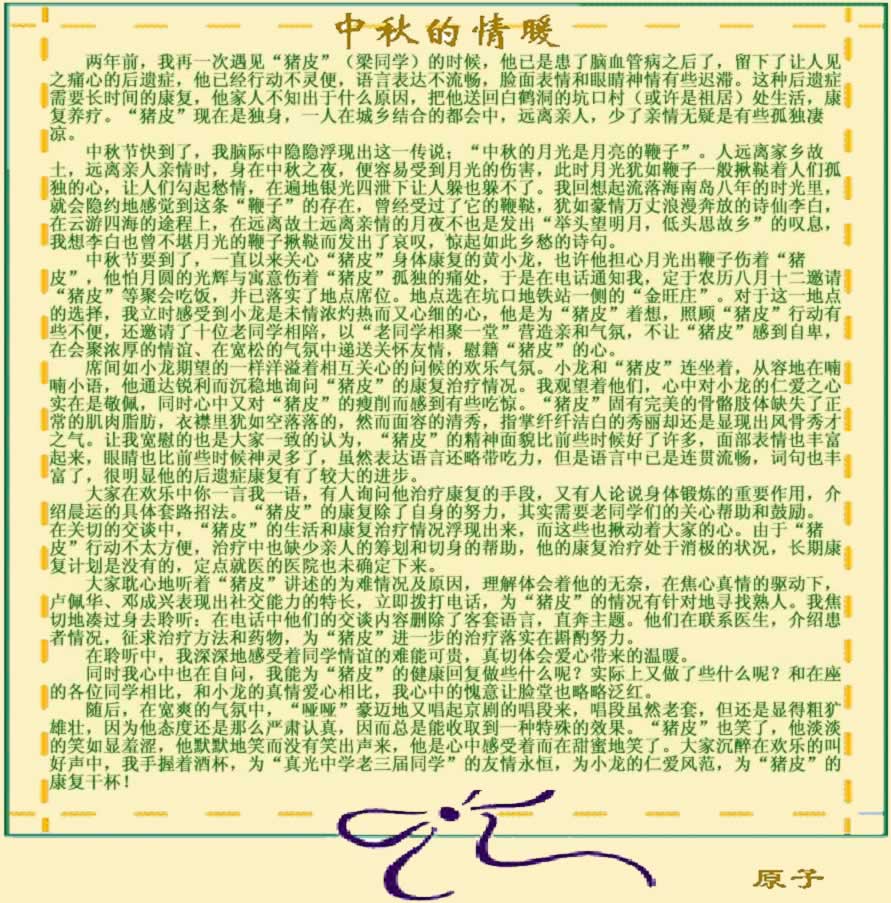 中秋的情暖
两年前，我再一次遇见“猪皮”（梁同学）的时候，他已是患了脑血管病之后了，留下了让人见
之痛心的后遗症，他已经行动不灵便，语言表达不流畅，脸面表情和眼睛神情有些迟滞。这种后遗症
需要长时间的康复，他家人不知出于什么原因，把他送回白鹤洞的坑口村（或许是祖居）处生活，康
复养疗。“猪皮”现在是独身，一人在城乡结合的都会中，远离亲人，少了亲情无疑是有些孤独凄
凉。
中秋节快到了，我脑际中隐隐浮现出这一传说；“中秋的月光是月亮的鞭子”。人远离家乡故
土，远离亲人亲情时，身在中秋之夜，便容易受到月光的伤害，此时月光犹如鞭子一般揪鞑着人们孤
独的心，让人们勾起愁情，在遍地银光四泄下让人躲也躲不了。我回想起流落海南岛八年的时光里，
就会隐约地感觉到这条“鞭子”的存在，曾经受过了它的鞭鞑，犹如豪情万丈浪漫奔放的诗仙李白，
在云游四海的途程上，在远离故土远离亲情的月夜不也是发出“举头望明月，低头思故乡”的叹息，
我想李白也曾不堪月光的鞭子揪鞑而发出了哀叹，惊起如此乡愁的诗句。
中秋节要到了，一直以来关心“猪皮”身体康复的黄小龙，也许他担心月光出鞭子伤着“猪
皮”，他怕月圆的光辉与寓意伤着“猪皮”孤独的痛处，于是在电话通知我，定于农历八月十二邀请
“猪皮”等聚会吃饭，并已落实了地点席位。地点选在坑口地铁站一侧的“金旺庄”。对于这一地点
的选择，我立时感受到小龙是未情浓灼热而又心细的心，他是为“猪皮”着想，照顾“猪皮”行动有
些不便，还邀请了十位老同学相陪，以“老同学相聚一堂”营造亲和气氛，不让“猪皮”感到自卑，
在会聚浓厚的情谊、在宽松的气氛中递送关怀友情，慰籍“猪皮”的心。
席间如小龙期望的一样洋溢着相互关心的问候的欢乐气氛。小龙和“猪皮”连坐着，从容地在喃
喃小语，他通达锐利而沉稳地询问“猪皮”的康复治疗情况。我观望着他们，心中对小龙的仁爱之心
实在是敬佩，同时心中又对“猪皮”的瘦削而感到有些吃惊。“猪皮”固有完美的骨骼肢体缺失了正
常的肌肉脂肪，衣襟里犹如空落落的，然而面容的清秀，指掌纤纤洁白的秀丽却还是显现出风骨秀才
之气。让我宽慰的也是大家一致的认为，“猪皮”的精神面貌比前些时候好了许多，面部表情也丰富
起来，眼睛也比前些时候神灵多了，虽然表达语言还略带吃力，但是语言中已是连贯流畅，词句也丰
富了，很明显他的后遗症康复有了较大的进步。
大家在欢乐中你一言我一语，有人询问他治疗康复的手段，又有人论说身体锻炼的重要作用，介
绍晨运的具体套路招法。“猪皮”的康复除了自身的努力，其实需要老同学们的关心帮助和鼓励。
在关切的交谈中，“猪皮”的生活和康复治疗情况浮现出来，而这些也揪动着大家的心。由于“猪
皮”行动不太方便，治疗中也缺少亲人的筹划和切身的帮助，他的康复治疗处于消极的状况，长期康
复计划是没有的，定点就医的医院也未确定下来。
大家耽心地听着“猪皮”讲述的为难情况及原因，理解体会着他的无奈，在焦心真情的驱动下，
卢佩华、邓成兴表现出社交能力的特长，立即拨打电话，为“猪皮”的情况有针对地寻找熟人。我焦
切地凑过身去聆听：在电话中他们的交谈内容删除了客套语言，直奔主题。他们在联系医生，介绍患
者情况，征求治疗方法和药物，为“猪皮”进一步的治疗落实在斟酌努力。
在聆听中，我深深地感受着同学情谊的难能可贵，真切体会爱心带来的温暖。
同时我心中也在自问，我能为“猪皮”的健康回复做些什么呢？实际上又做了些什么呢？和在座
的各位同学相比，和小龙的真情爱心相比，我心中的愧意让脸堂也略略泛红。
随后，在宽爽的气氛中，“哑哑”豪迈地又唱起京剧的唱段来，唱段虽然老套，但还是显得粗犷
雄壮，因为他态度还是那么严肃认真，因而总是能收取到一种特殊的效果。“猪皮”也笑了，他淡淡
的笑如显羞涩，他默默地笑而没有笑出声来，他是心中感受着而在甜蜜地笑了。大家沉醉在欢乐的叫
好声中，我手握着酒杯，为“真光中学老三届同学”的友情永恒，为小龙的仁爱风范，为“猪皮”的
康复干杯！
原子